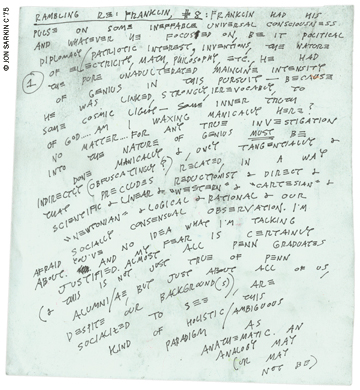 © JON SARKIN C'75
RAMBLING RE: FRANKLIN, : FRANKLIN HAD HIS
PULSE ON SOME INEFFABLE UNIVERSAL CONSCIOUSNESS
AND WHATEVER HE FOCUSED ON, BE IT POLITICAL
DIPLOMACY, PATRIOTIC INTEREST, INVENTIONS, THE NATURE
OF ELECTRICITY, MATH, PHILOSOPHY, ETC., HE HAD
THE PURE UNADULTERATED MAINLINE INTENSITY
① OF GENIUS IN THIS PURSUIT — BECAUSE
HE WAS LINKED, STRONGLY, IRREVOCABLY, TO
SOME COSMIC LIGHT — SOME INNER TRUTH
OF GOD.... AM I WAXING MANICALLY HERE?
NO MATTER.... FOR ANY TRUE INVESTIGATION
INTO THE NATURE OF GENIUS MUST BE
DONE MANICALLY & ONLY TANGENTIALLY &
INDIRECTLY (OBFUSCATINGLY?) RELATED IN A WAY
THAT PRECLUDES REDUCTIONIST & DIRECT &
SCIENTIFIC & LINEAR & "WESTERN" & "CARTESIAN" &
"NEWTONIAN" & LOGICAL & RATIONAL & OUR
SOCIALLY CONSENSUAL OBSERVATION. I'M
AFRAID YOU'VE NO IDEA WHAT I'M TALKING
ABOUT. AND MY FEAR IS CERTAINLY
JUSTIFIED. ALMOST ALL PENN GRADUATES
(& THIS IS NOT JUST TRUE OF PENN
ALUMNI/AE BUT JUST ABOUT ALL OF US,
DESPITE OUR BACKGROUND(S)) ARE
SOCIALIZED TO SEE THIS
KIND OF HOLISTIC/AMBIGUOUS
PARADIGM AS
ANATHEMATIC. AN
ANALOGY MAY
(OR MAY
NOT BE)